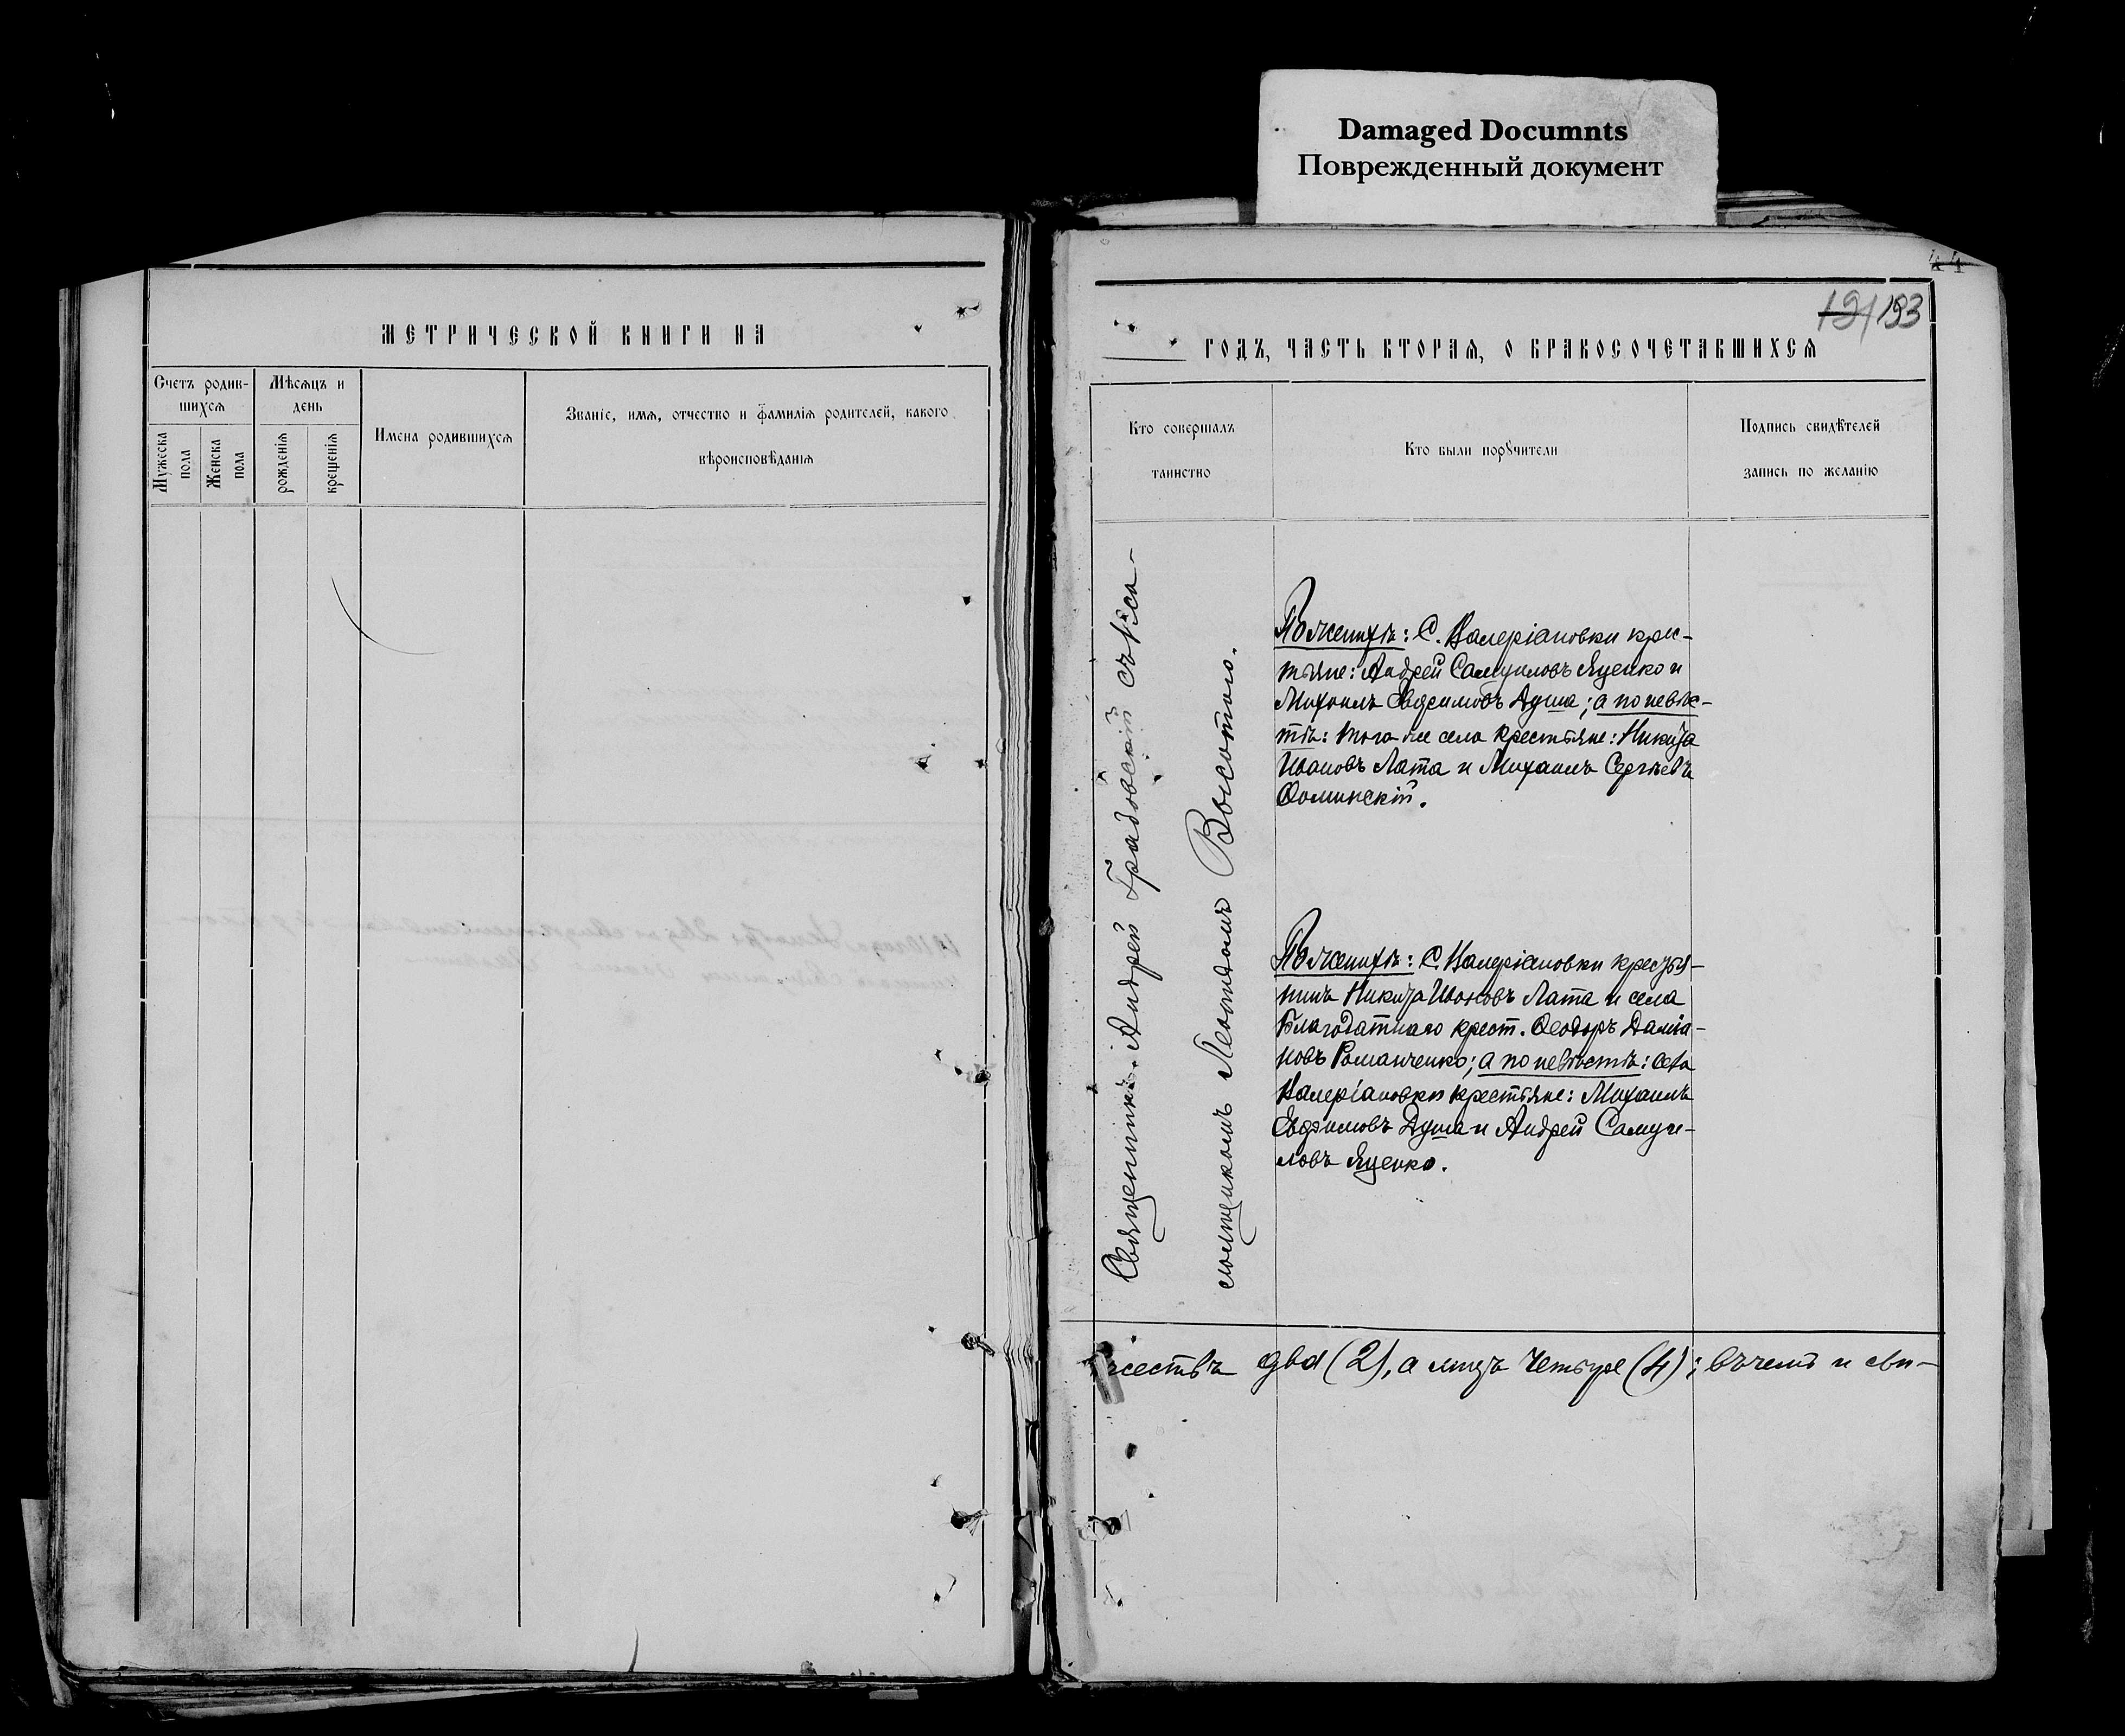 Damaged Documnts
Поврежденный документ
МЕТРИЧЕСКОЙ КНИГИ НА
Счетъ родив-
шихсѧ
Мѣсѧцъ и
день
Мужеска
пола
Женска
пола
рожденїѧ
крещенїѧ
Имена родившихсѧ
Званїе, имѧ, отчество и фамилїѧ родителей, какого
вѣроисповѣданїѧ
44
191 193
ГОДЪ, ЧАСТЬ ВТОРАѦ, О БРАКОСОЧЕТАВШИХСѦ
Кто совершалъ
таинство
Кто были порꙋчители
Подпись свидѣтелей
запись по желанїю
Священникъ Андрей Градовскій съ Пса-
ломщикомъ Леонтіемъ Высотою.
По женихѣ: С. Валеріановки крес-
тьяне: Андрей Самуиловъ Яценко и
Михаилъ Евфимовъ Душа; а по невѣс-
тѣ: того же села крестьяне: Никита
Ивановъ Лата и Михаилъ Сергѣевъ
Ѳоминскій.
По женихѣ: С. Валеріановки крестья-
нинъ Никита Ивановъ Лата и села
Благодатнаго крест. Ѳеодоръ Даміа-
новъ Романченко; а по невѣстѣ: села
Валеріановки крестьяне: Михаилъ
Евфимовъ Душа и Андрей Самуи-
ловъ Яценко.
жествъ два (2), а лицъ четыре (4); въ чемъ и сви-